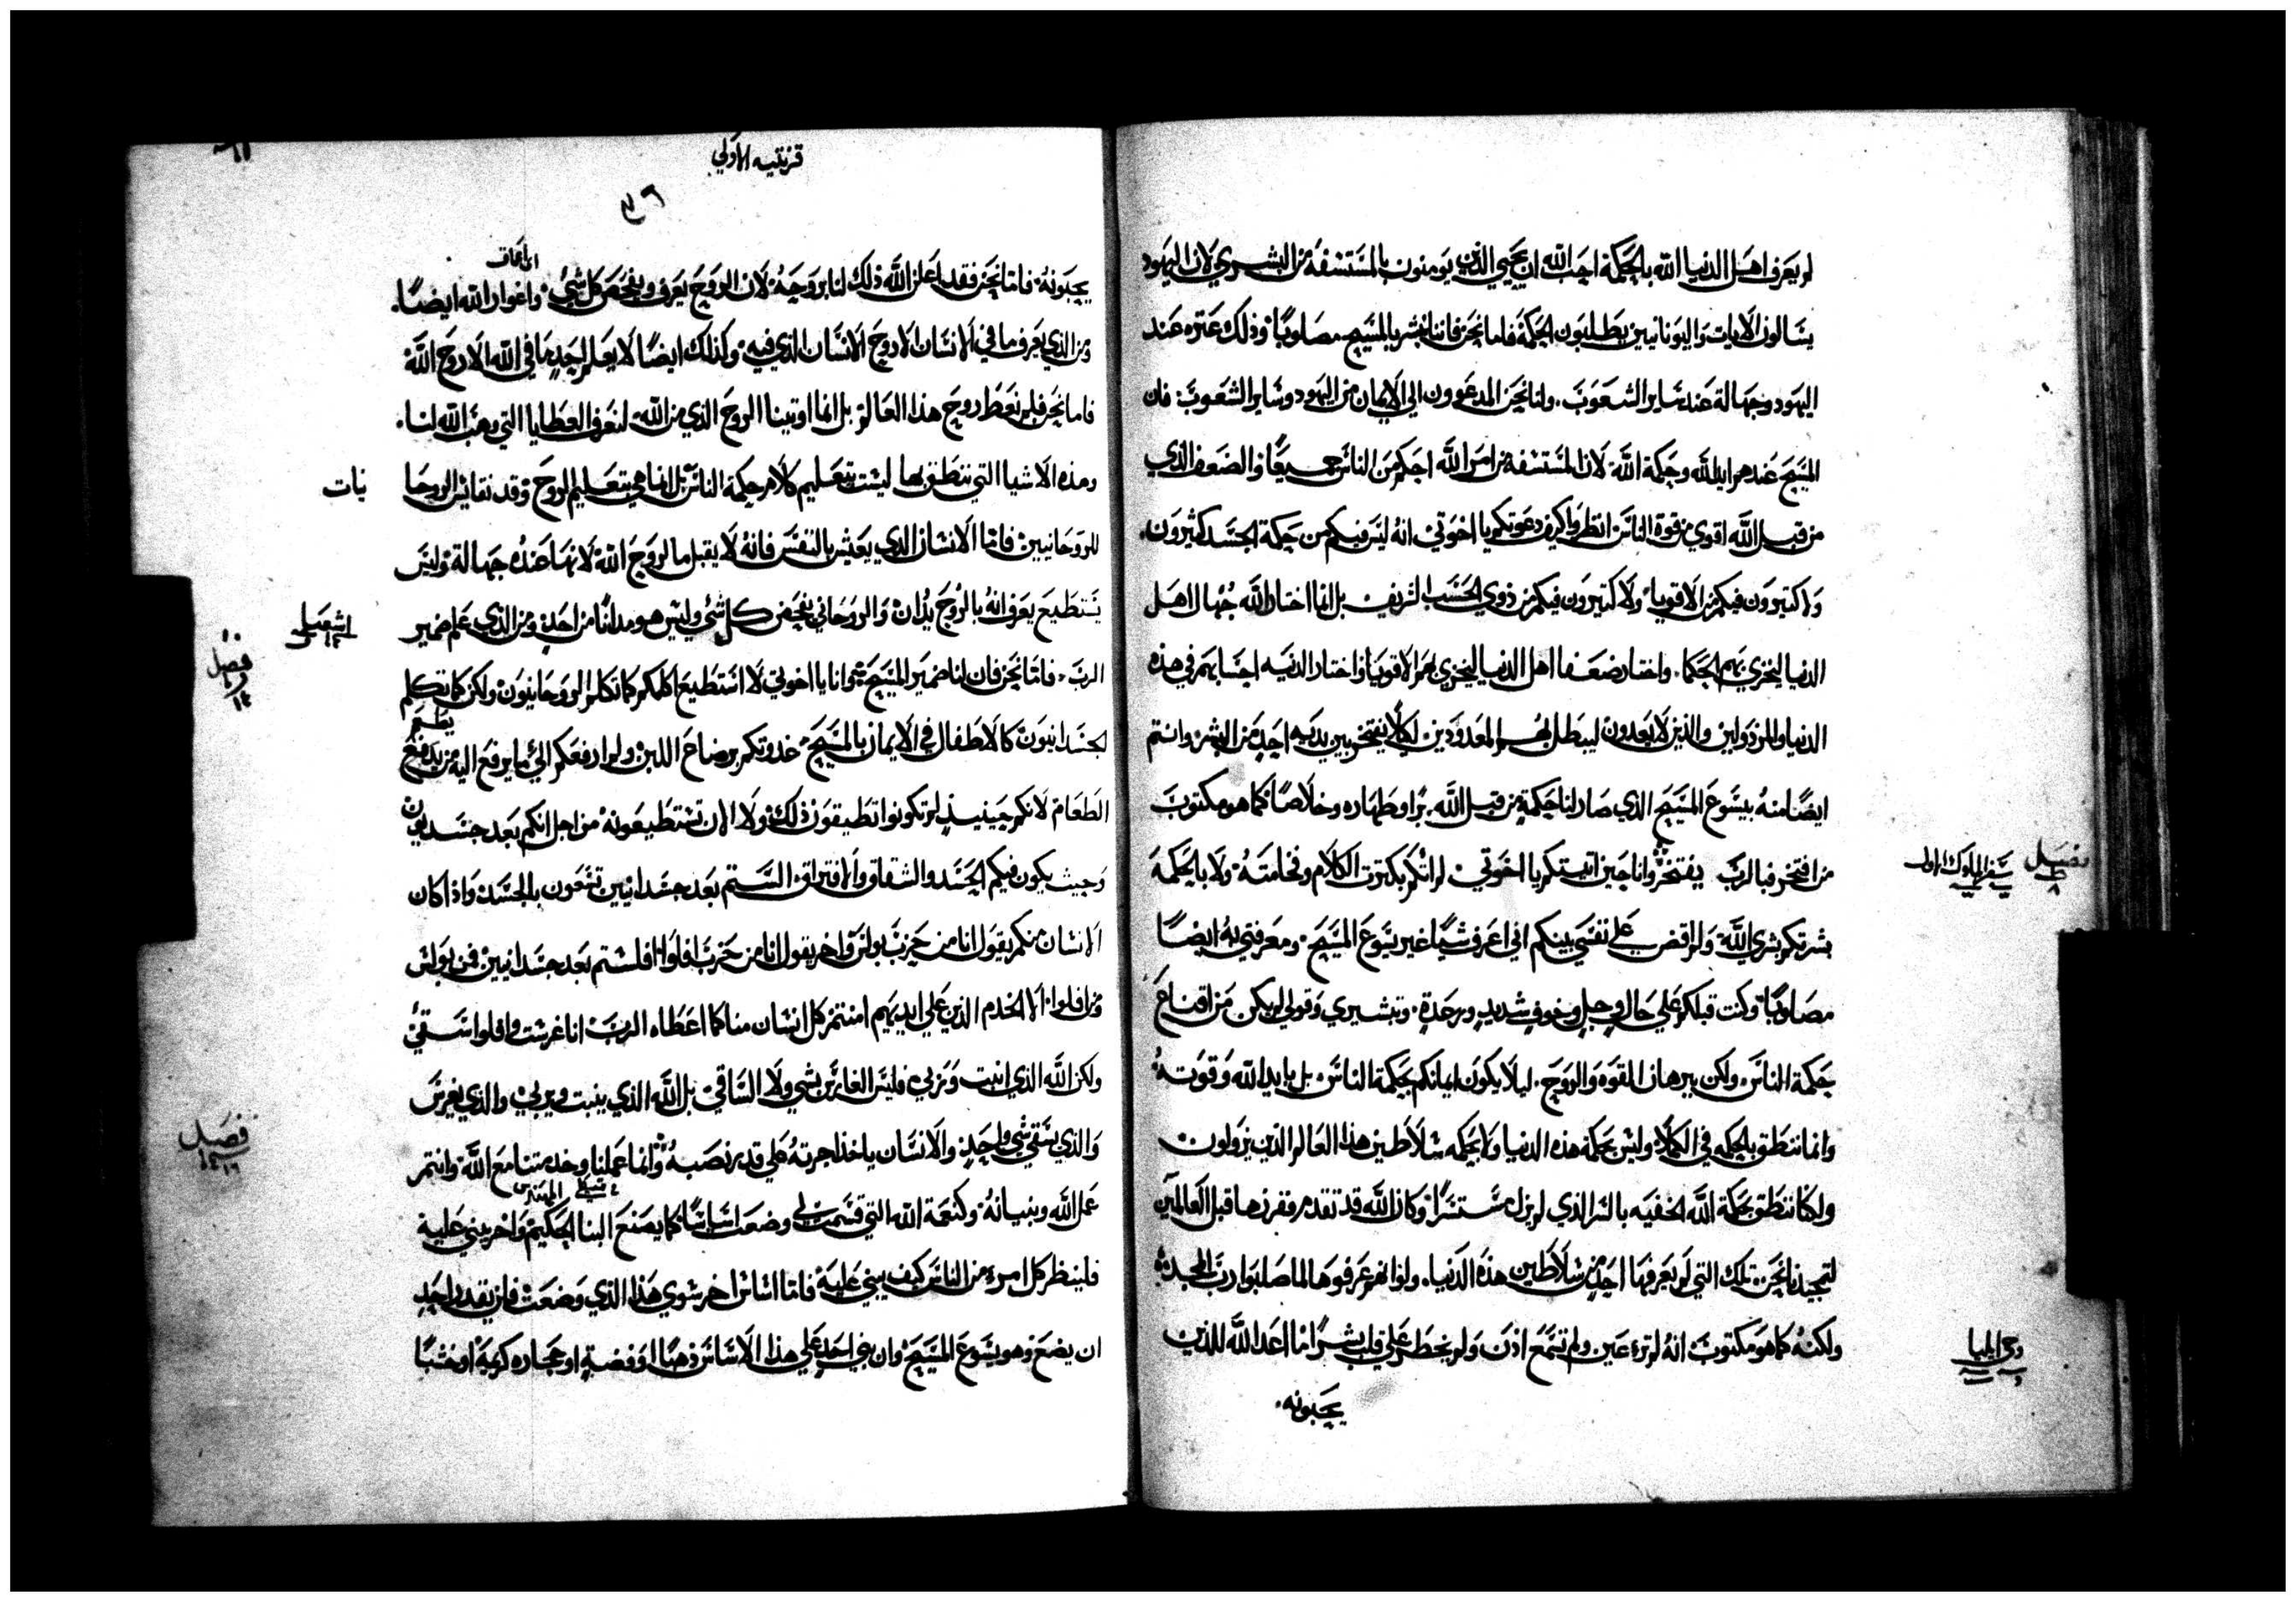 لم يعرف اهل الدنيا الله بالحكمة احب الله ان يحيي الذين يومنون بالمستسفة من البشري لان اليهود
يسالون الايات واليونانيين يطلبون الحكمة فاما نحن فاننا نبشر بالمسيح مصلوبًا وذلك عتره عند
اليهود وجهالة عند ساير الشعوب. ولنا نحن المدعوون الي الايمان من اليهود وساير الشعوب فان
المسيح عندهم ايد الله وحكمة الله لان المستسفة من امر الله احكم من الناس جميعًا والضعف الذي
من قبل الله اقوي من قوة الناس انظروا كيف دعوتكم يا اخوتي انه ليس فيكم من حكمة الجسد كثيرون.
ولا كتيرون فيكم من الاقويا ولا كتيرون فيكم من ذوي الحسب الشريف بل انما اختار الله جُهال اهل
الدنيا ليخزي بهم الحكما. واختار ضعفا اهل الدنيا ليخزي بهم الاقويا واختار الدنيه احسابهم في هذه
الدنيا والمرذولين والذين لا يعدون ليبطل بهم المعدودين لكلا يفتخر بين يديه احد من البشر وانتم
ايضًا منه بيسوع المسيح الذي صار لنا حكمة من قبل الله. برًا وطهاره وخلاصًا فكما هو مكتوب
من افتخر فبالرب يفتخر وانا حين اتيتكم يا اخوتي لم اتكم بكترت الكلام وفخامته ولا بالحكمة
فصل
سفر الملوك الاول
بشرتكم بشري الله ولم اقض علي نفسي بينكم اني اعرف شيًا غير يسوع المسيح ومعرفتي به ايضًا
مصلوبًا وكنت قبلكم علي حال وجل وخوف شديد ورعدة. وتبشيري وقولي لم يكن من اقناع
بحكمة الناس. ولكن ببرهان القوه والروح. ليلا يكون ايمانكم بحكمة الناس بل بايد الله وقوته
وانما ننطق بالحكمه في الكملا وليس بحكمة هذه الدنيا ولا بحكمه سلاطين هذا العالم الذين يزولون
ولكنا ننطق بحكمة الله الخفيه بالسر الذي لم يزل مستترًا وكان الله قد تقدم وفرزها قبل العالمين
لتمجيدنا نحن. تلك التي لم يعرفها احد من سلاطين هذه الدنيا. ولو انهم عرفوها لما صلبوا رب المجد
ولكنه كما هو مكتوب انه لم تره عين ولم تسمع اذن ولم يخطر علي قلب بشر ما اعد الله للذين
يحبونه.
قرنتيه الاولي
يحبونه فاما نحن فقد اعلن الله ذلك لنا بروحه لان الروح يعرف ويفحص كل شي واغوار الله ايضًا.
ومن الذي يعرف ما في الانسان الا روح الانسان الذي فيه وكذلك ايضًا لا يعلم احد ما في الله الا روح الله
فاما نحن فلم نعط روح هذا العالم بل انما اوتينا الروح الذي من الله لنعرف العطايا التي وهب الله لنا.
وهذه الاشيا التي ننطق بها ليست بتعليم كلام حكمة الناس بل انما هي بتعليم الروح وقد نقايس الروحا نيات
للروحانيين فاما الانسان الذي يعيش بالنفس فانه لا يقبل ما لروح الله لانها عنده جهالة وليس
يستطيع يعرف انه بالروح يُدان والروحاني يفحص كل شي وليس هو مدانًا من احد ومن الذي علم ضمير
اشعيا
فصل
الرب. فاما نحن فان لنا ضمير المسيح وانا يا اخوتي لا استطيع اكلمكم كما نكلم الروحانيون ولكن كما نكلم
الجسدانيون كالاطفال في الايمان بالمسيح غدوتكم برضاع اللبن ولم ارفعكم الي ما يرفع اليه من
الطعام لانكم حينيذ لم تكونوا تطيقون ذلك ولا الان تستطيعونه من اجل انكم بعد جسديون
وحيث يكون فيكم الحسد والشقاق والافتراق الستم بعد جسدانيين تسعون بالجسد واذا كان
الانسان منكم يقول انا من حزب بولس واخر يقول انا من حزب افلوا افلستم بعد جسدانيين فمن بولس
ومن افلوا. الا الخدم الذين علي ايديهم امنتم كل انسان منا كما اعطاه الرب انا غرست وافلوا سقي
ولكن الله الذي انبت وربي فليس الغارس بشي ولا الساقي بل الله الذي ينبت ويربي والذي يغرس
فصل
والذي يسقي شي واحد. والانسان ياخذ اجرته علي قدر نصبه وانما عملنا وخدمتنا مع الله وانتم
عمل الله وبنيانه وكنعمة الله التي قسمت لي وضعت اساسًا كما يصنع البنا الحكيم واخر يبني عليه
فلينظر كل امرء من الناس كيف يبني عليه فاما اساس اخر سوي هذا الذي وضعت فلن يقدر احد
ان يضع وهو يسوع المسيح وان بني احد علي هذا الاساس ذهبًا او فضة او حجاره كريمة او خشبًا